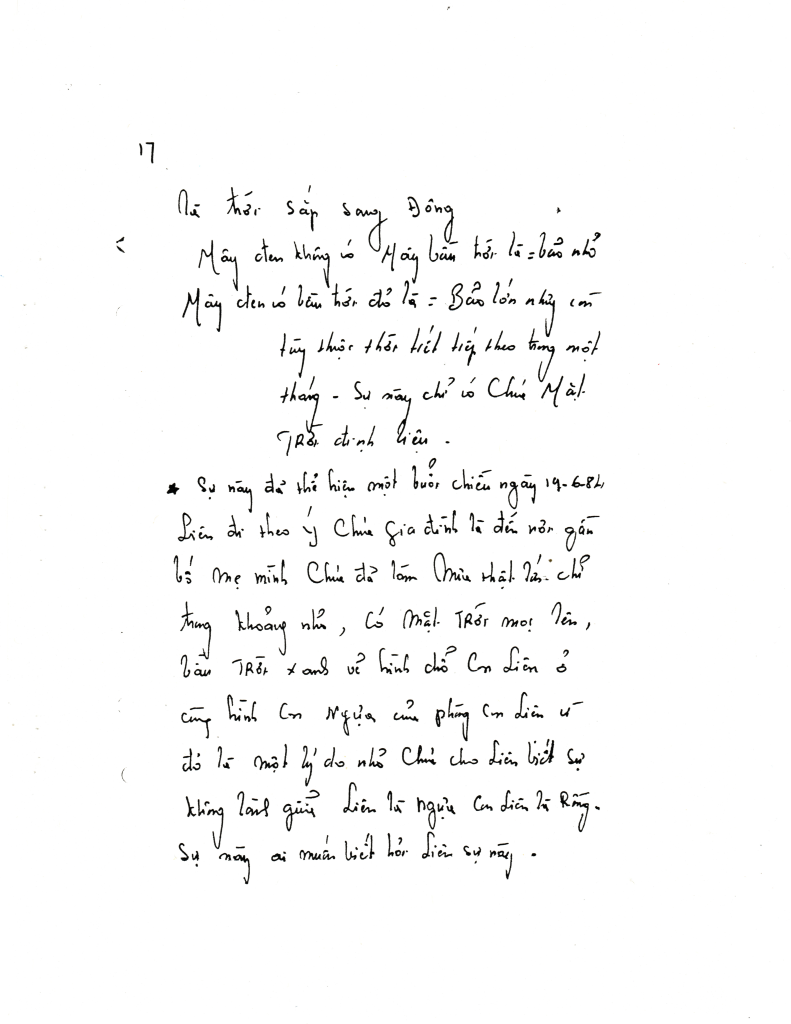 17
Là trời sắp sang Đông
Mây đen không có Mây bầu trời là = bảo nhỏ
Mây đen có bầu trời đỏ là = Bảo lớn nhưng còn
tùy thuộc thời tiết tiếp theo trong một
tháng - Sự này chỉ có Chúa Mặt
TRời định liệu.
* Sự này đã thể hiện một buổi chiều ngày 19-6-84
Liên đi theo Ý Chúa gia đình là đến nơi gần
bố mẹ mình Chúa đã làm Mưa thật lớn chỉ
trong khoảng nhỏ, Có Mặt TRời mọc lên,
bầu TRời xanh vẽ hình chổ Con Liên ở
cùng hình Con Ngựa của phòng Con Liên ở
đó là một lý do nhỏ Chúa cho Liên biết sự
không lành giữa Liên là Ngựa Con Liên là Rồng.
Sự này ai muốn biết hỏi Liên sự này.